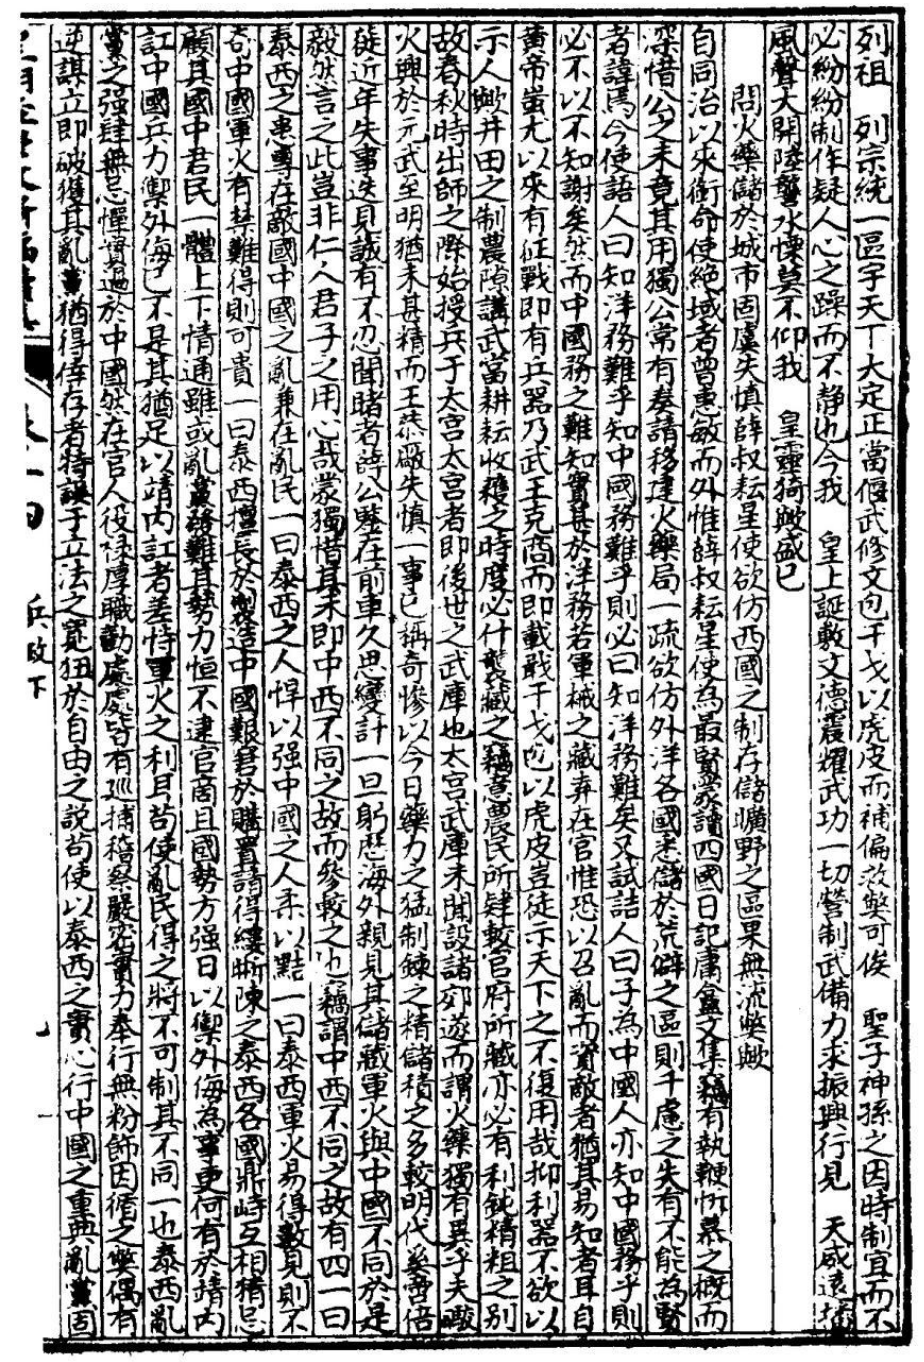 列祖　列宗統一區宇天下大定正當偃武修文包干戈以虎皮而補偏救弊可俟　聖子神孫之因時制宜而不
必紛紛制作疑人心之躁而不静也今我　皇上誕敷文德震耀武功一切營制武備力求振興行見　天威遠播
風聲大開陸讋水慄莫不仰我　皇靈猗歟盛已
問火藥儲於城市固虞失慎薛叔耘星使欲仿西國之制存儲曠野之區果無流弊歟
自同治以來銜命使絕域者曾惠敏而外惟薛叔耘星使為最賢蒙讀四國日記庸盦文集竊有執鞭忻慕之概而
深惜公之未竟其用獨公常有奏請移建火藥局一疏欲仿外洋各國悉儲於荒僻之區則千慮之失有不能為賢
者諱焉今使語人曰知洋務難乎知中國務難乎則必曰知洋務難矣又試詰人曰子為中國人亦知中國務乎則
必不以不知謝矣然而中國務之難知實甚於洋務若軍械之藏弆在官惟恐以召亂而資敵者猶其易知者耳自
黄帝蚩尤以來有征戰即有兵器乃武王克商而即載戢干戈包以虎皮豈徒示天下之不復用哉抑利器不欲以
示人歟井田之制農隙講武當耕耘收穫之時度必什襲藏之竊意農民所肄較官府所藏亦必有利鈍精粗之别
故春秋時出師之際始授兵于太宫太宫者即後世之武庫也太宫武庫未聞設諸郊遂而謂火藥獨有異乎夫礮
火興於元武至明猶未甚精而王恭廠失慎一事已稱奇慘以今日藥力之猛制鍊之精儲積之多較明代奚啻倍
徙近年失事迭見誠有不忍聞睹者薛公鑒在前車久思變計一旦躬歷海外親見其儲藏軍火與中國不同於是
毅然言之此豈非仁人君子之用心哉蒙獨惜其未即中西不同之故而參較之也竊謂中西不同之故有四一曰
泰西之患專在敵國中國之亂兼在亂民一曰泰西之人悍以强中國之人柔以黠一曰泰西軍火易得數見則不
奇中國軍火有禁難得則可貴一曰泰西擅長於製造中國艱窘於購置請得縷晰陳之泰西各國鼎峙互相猜忌
顧其國中君民一體上下情通雖或亂黨潛難其勢力恒不逮官商且國勢方强日以禦外侮為事更何有於靖内
訌中國兵力禦外侮已不足其猶足以靖内訌者差恃軍火之利耳苟使亂民得之將不可制其不同一也泰西亂
黨之强肆無忌憚實過於中國然在官人役禄厚職勤處處皆有巡捕稽察嚴密實力奉行無粉飾因循之弊偶有
逆謀立即破獲其亂黨猶得倖存者特誤于立法之寬狃於自由之説苟使以泰西之實心行中國之重典亂黨固
兵政下